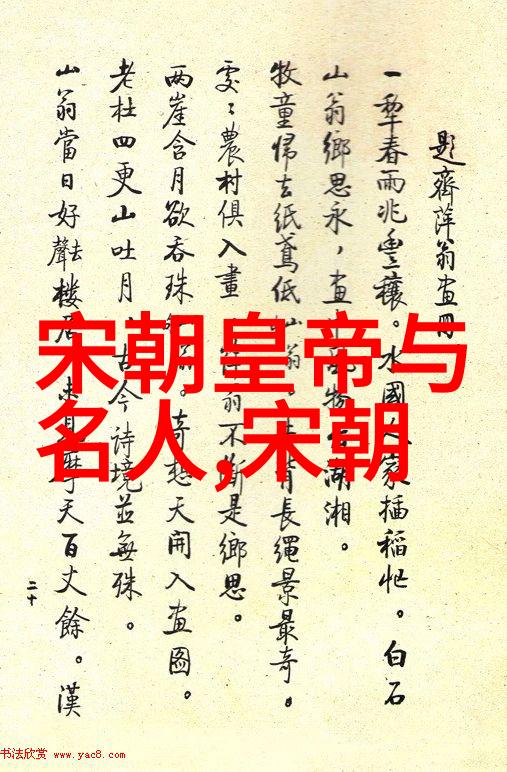 題齊萍翁畫冊
一犂春雨兆豐穰。水國人家插稻忙。白石
山翁鄉思永,畫物湖湘。
牧童歸去紙鳶低山翁背長繩景最奇。
處〻農村俱入畫翁不斷是鄉思。
兩崖含月欲吞珠。奇想天開入畫圖。
老杜四更山吐月、古今詩境並無殊。
山翁當日好去聲樓居摩天百丈餘。漢
二十
宋朝皇帝与
名人,宋朝
书法欣赏 www.yac8.com